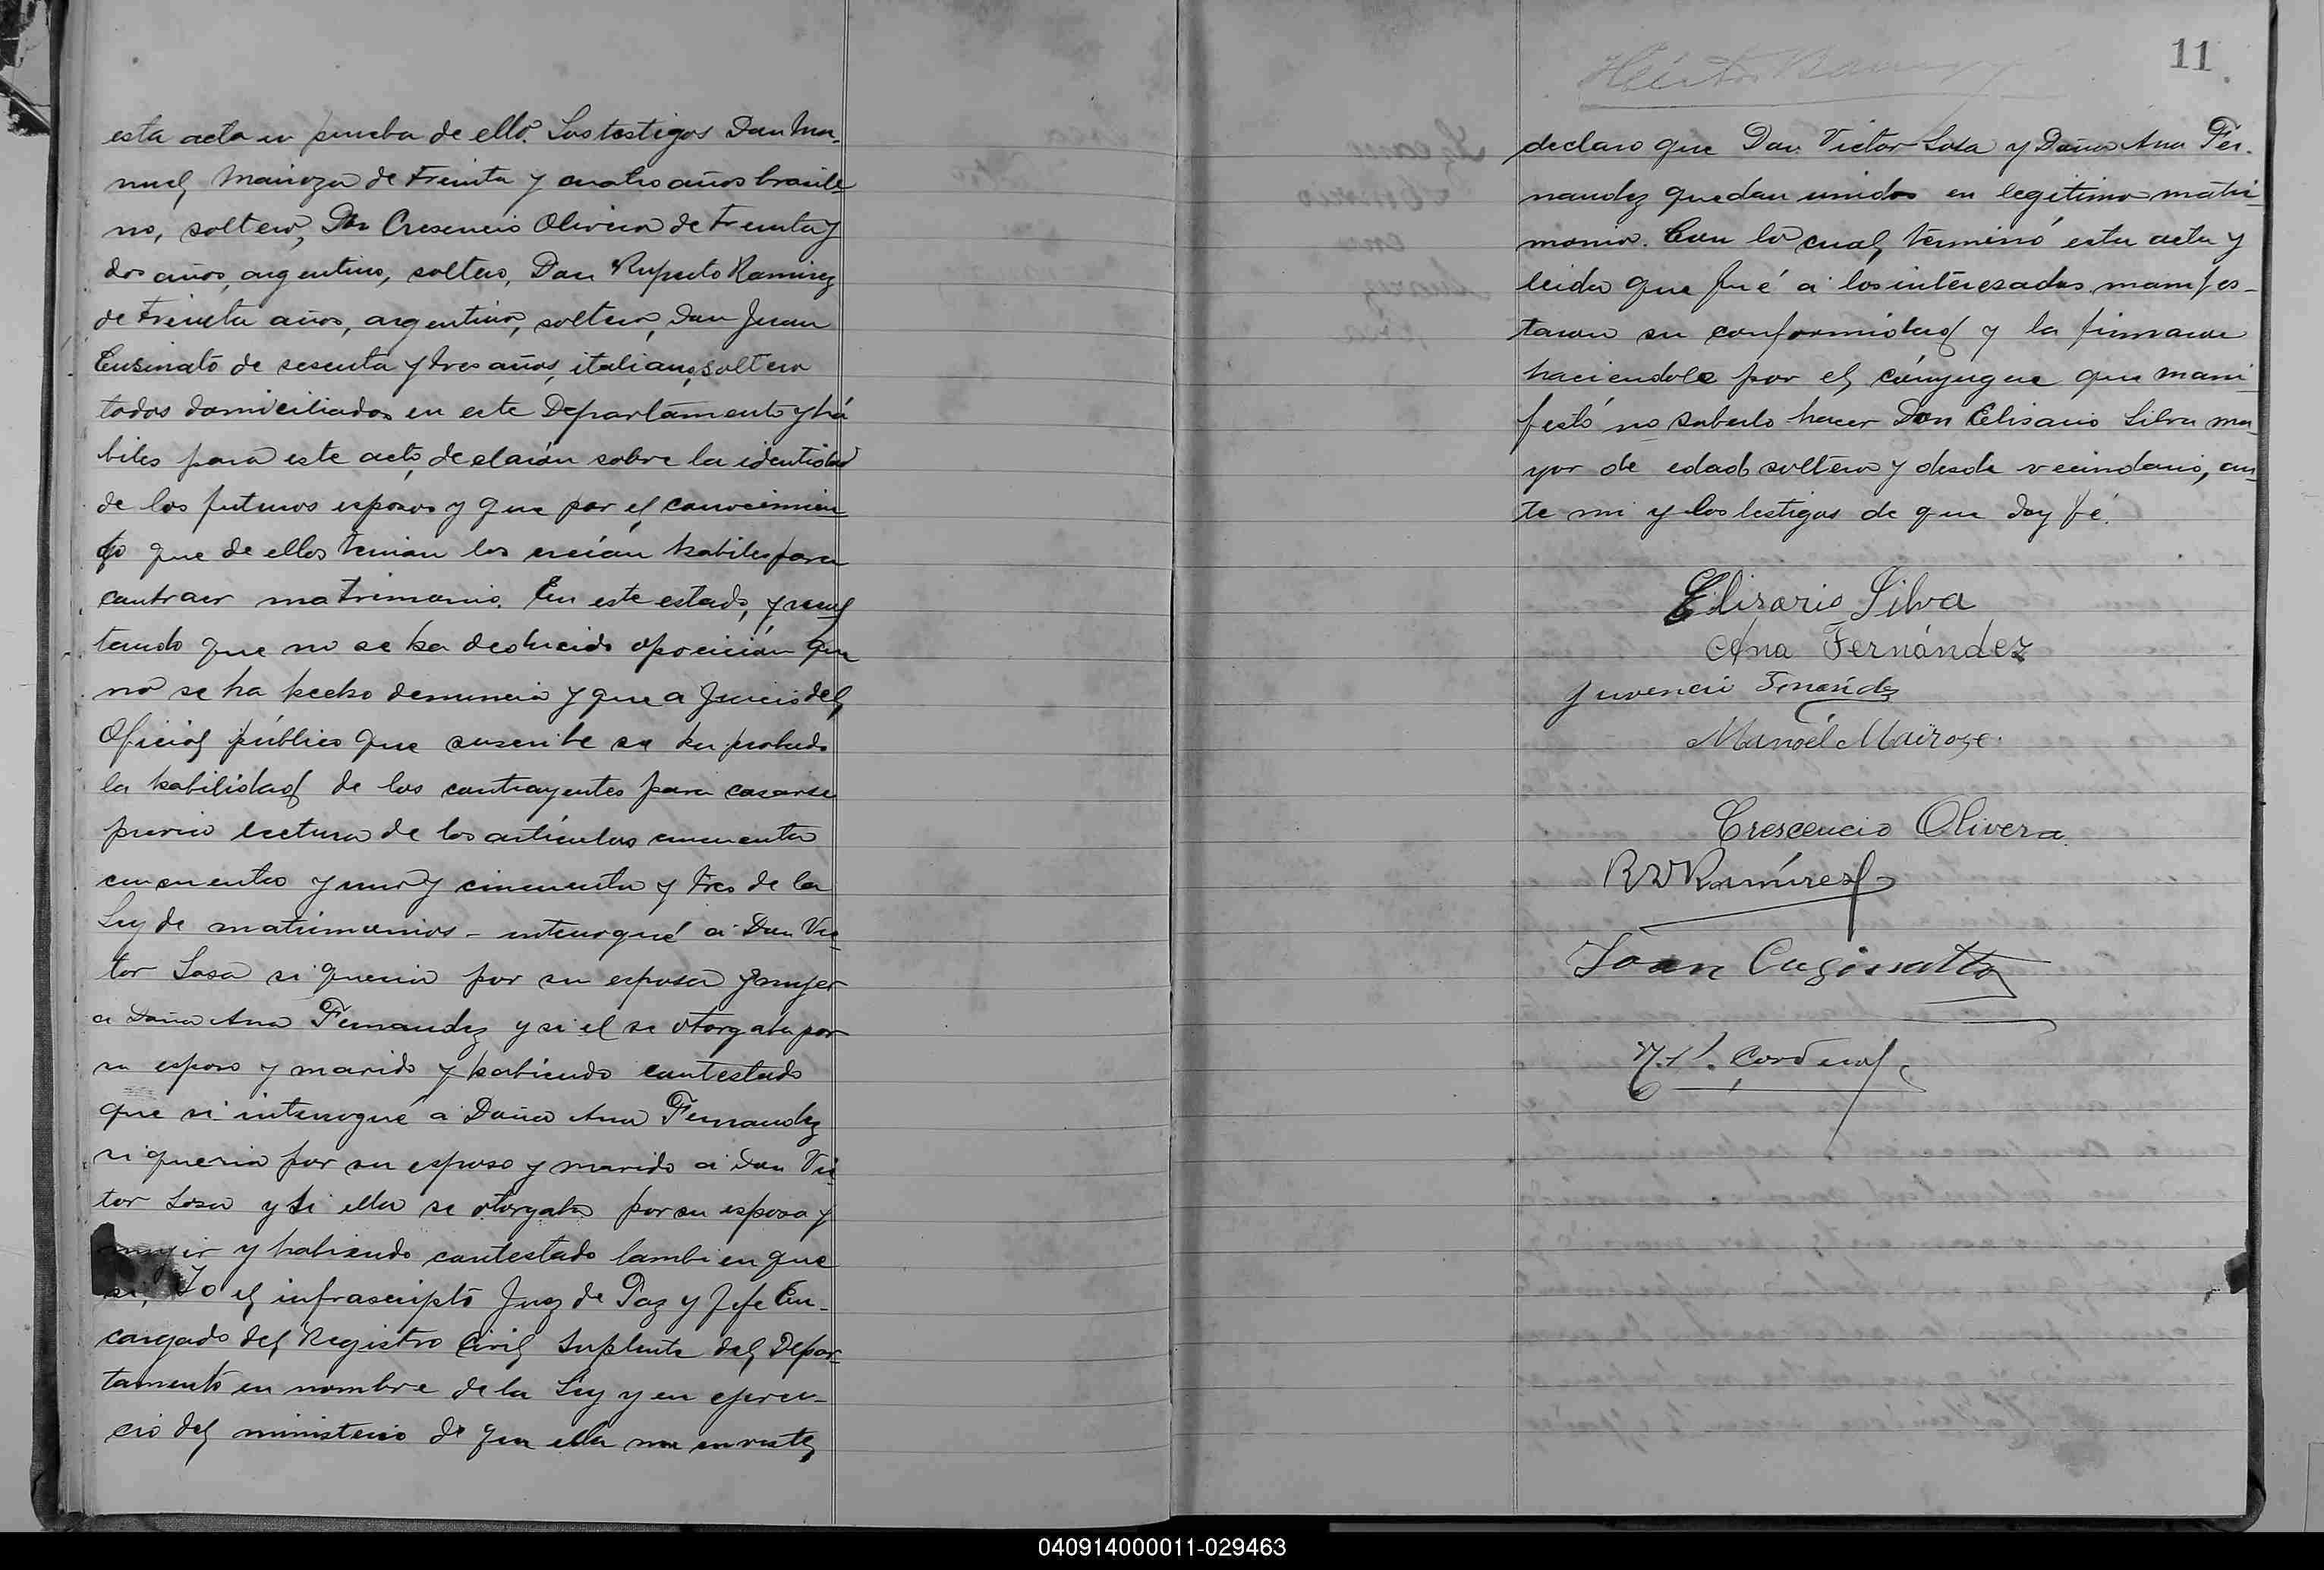 esta acta en prueba de ello. Los testigos Don Ma-
nuel Mairoza de Treinta y cuatro años brasile-
no, soltero, Don Cresencio Olivera de Treinta y
dos años, argentino, soltero, Don Ruperto Ramirez
de Treinta años, argentino, soltero, Don Juan
Cusinato de sesenta y tres años, italiano, soltero
todos domiciliados en este Departamento y há
biles para este acto, declarón sobre la identidad
de los futuros esposos y que por el conocimien
to que de ellos tenian los creían habiles para
contraer matrimonio. En este estado, y resul
tando que no se ha deducido oposición que
no se ha hecho denuncia y que a juicio del
Oficial público que suscribe se ha probado
la habilidad de los contrayentes para casarse
previa lectura de los artículos cincuenta
cincuenta y uno y cincuenta y tres de la
Ley de matrimonios - interroqué a Don Vic-
tor Sosa si queria por su esposa y mujer
a Doña Ana Fernandez y si el se otorgaba por
su esposo y marido y habiendo contestado
que si interrogué a Doña Ana Fernandez
si queria por su esposo y marido a Don Vic-
tor Sosa y si ella se otorgaba por su esposa y
mujer y habiendo contestado tambien que
si, Yo el infrascripto Juez de Paz y Jefe En-
cargado del Registro Civil Suplente del Depar-
tamento en nombre de la Ley y en ejerci-
cio del ministerio de que ella me enviste,
11
declaro que Don Victor Sosa y Doña Ana Fer-
nandez quedan unidos en legitimo matri-
monio. Con lo cual, terminó esta acta y
leida que fué a los interesados manifes-
taron su conformidad y la firmaron
haciendolo por el cónyugue que mani
festó no saberlo hacer Don Elisario Silva ma-
yor de edad soltero y desde vecindario, an-
te mi y los testigos de que doy fé.
Elisario Silva
Ana Fernández
Juvencio Fernández
Manoel Mairoze.
Crescencio Olivera.
R Ramírez
Joan Cusinatto
040914000011-029463